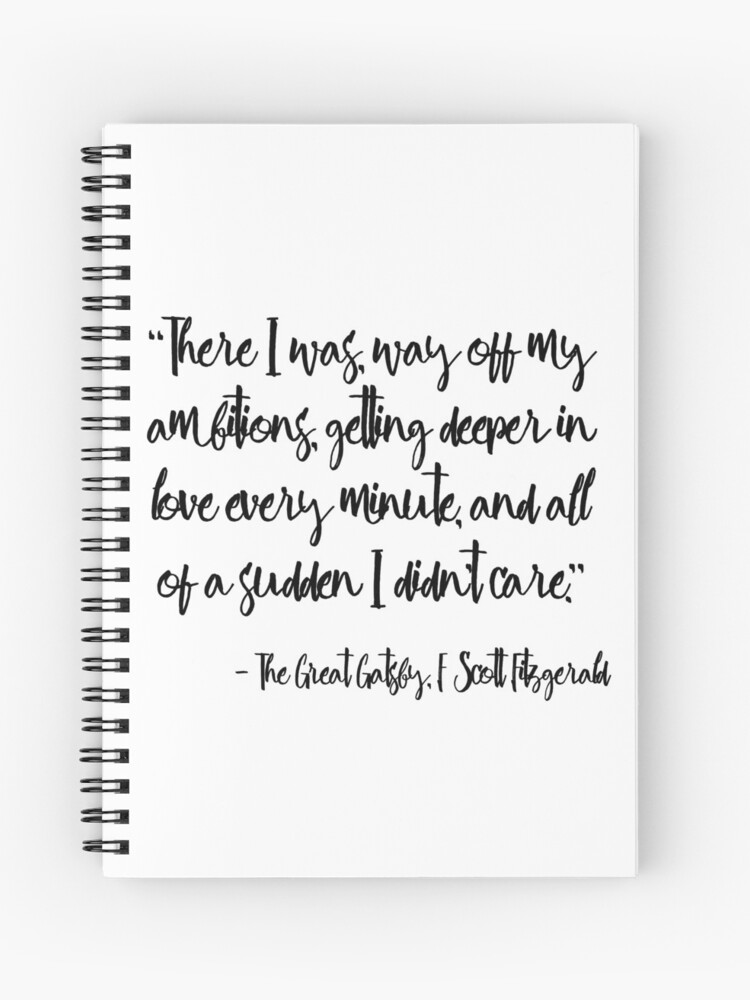 “There I was, way off my
ambitions, getting deeper in
love every minute, and all
of a sudden I didn't care.”
- The Great Gatsby, F Scott Fitzgerald